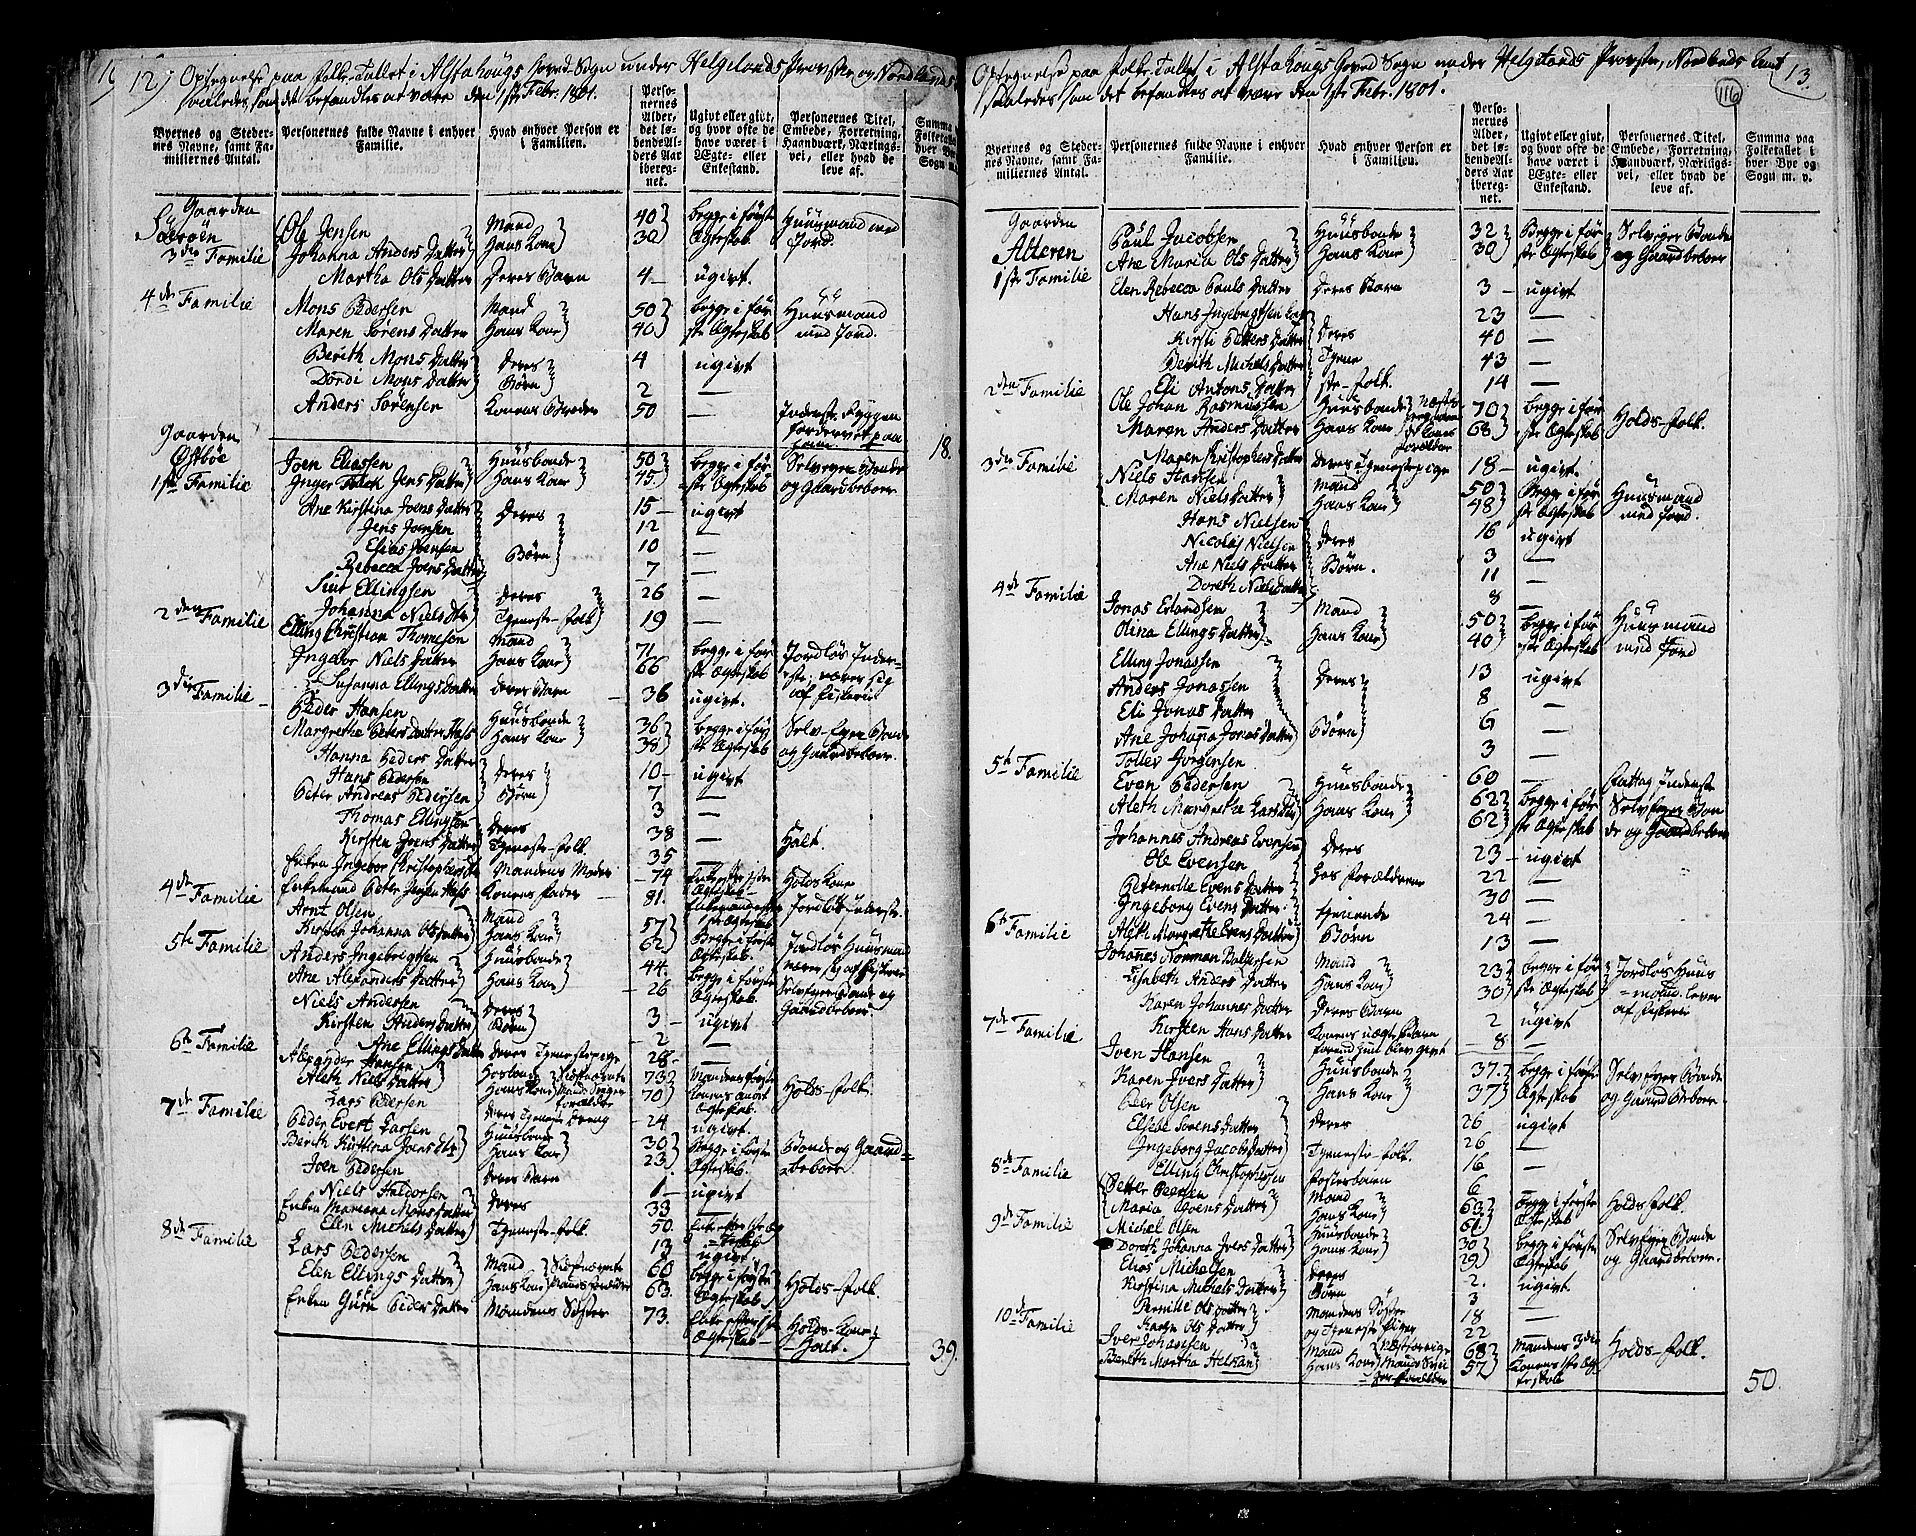 12) Optegnelse paa Folke-Tallet i Alstahougs Hoved-Sogn under Helgelands Provstie og Nordlands
saaledes som det befandtes at være den 1ste Febr. 1801.
Byernes og Stedernes Navne, samt Familiernes Antal.
Personernes fulde Navne i enhver Familie.
Hvad enhver Person er i Familien.
Personernes Alder, det løbende Alders Aar iberegnet.
Ugivt eller givt, og hvor ofte de have været i Ægte- eller Enkestand.
Personernes Titel, Embede, Forretning, Haandværk, Næringsvei, eller hvad de leve af.
Gaarden
3die Familie
Ole Jensen Mand 40 begge i første Huusmand med
Johanna Anders Datter Hans Kone 30 Ægteskab Jord.
Martha Ols Datter Deres Barn 4 ugivt.
4de Familie
Mons Pedersen Mand 50 begge i før- Huusmand
Maren Sørens Datter Hans Kone 40 ste Ægteskab med Jord.
Berith Mons Datter Deres 4 ugivt
Dordi Mons Datter Børn 2 —
Anders Sørensen Konens Broder 50 —
18.
Gaarden
Østbøe
1ste Familie
Joen Eliassen Huusbonde 50 begge i før- Selveyer Bonde
Inger Falck Jens Datter Hans Kone 45 ste Ægteskab og Gaardbeboer
Ane Kirstina Joens Datter Deres 15 ugivt
Jens Joensen 12 —
Elias Joensen Børn 10 —
Rebecca Joens Datter 7 —
Siur Ellingsen Deres 26 —
Johanna Niels Dtr Tjeneste-Folk 19 —
2den Familie
Elling Christian Thomesen Mand 71 begge i før-
Ingebor Niels Datter Hans Kone 66 ste Ægteskab
Susanna Ellings Datter Deres Barn 36 ugivt.
3die Familie
Peder Hansen Huusbonde 36 begge i før- Selv-Eyer Bonde
Margrethe Peters Datter Hans Kone 38 ste Ægteskab og Gaardbeboer.
Hanna Peders Datter Deres 10 ugivt
Hans Pedersen Børn 7 —
Peter Andreas Pedersen 3 —
Thomas Ellingsen Deres 38 — Halt.
Kirsten Joens Datter Tjeneste-Folk. 35 —
Enken Ingebor Christophers D. Mandens Moder 74
Enkemand Peter Konens Fader 81.
4de Familie
Arnt Olsen Mand 57
Kirsten Johanna Ols Datter Hans Kone 62
5te Familie
Anders Ingebrigtsen Huusbonde 44. begge i første Selveyer Bonde og
Ane Alexanders Datter Hans Kone 26 Ægteskab. Gaardbeboer
Niels Andersen Deres 3 ugivt
Kirsten Anders Datter Børn 2 —
Ane Ellings Datter Deres Tjenestepige 28 —
6te Familie
Alexander Hansen 73
Aleth Niels Datter Hans Kone 70 Holds-Folk.
Lars Pedersen 24 ugivt.
7de Familie
Peder Evert Larsen Huusbonde 30 begge i første Bonde og Gaard-
Berith Kirstina Joens Dtr Hans Kone 23 Ægteskab. beboer
Joen Pedersen Deres Barn 1 ugivt
Niels Haldorsen Deres 33
Enken Mariana Mons Datter Tjeneste-Folk. 50.
Elen Michels Datter 13 ugivt.
8de Familie
Lars Pedersen Mand 60 begge i første Holds-Folk.
Elen Ellings Datter Hans Kone 63. Ægteskab
Enken Guru Peders Datter Mandens Søster 73. Holds-Kone
Halt.
39.
Optegnelse paa Folke-Tallet i Alstahougs Hoved Sogn under Helgelands Provstie, Nordlands Amt 13.
116
saaledes som det befandtes at være den 1ste Febr. 1801.
Byernes og Stedernes Navne, samt Familiernes Antal.
Personernes fulde Navne i enhver Familie.
Hvad enhver Person er i Familien.
Personernes Alder, det løbende Alders Aar iberegnet.
Ugivt eller givt, og hvor ofte de have været i Ægte- eller Enkestand.
Personernes Titel, Embede, Forretning, Haandværk, Næringsvei, eller hvad de leve af.
Summa paa Folketallet i hver Bye og Sogn m. v.
Gaarden
Alteren
1ste Familie
Paul Jacobsen Huusbonde 32 Begge i før- Selveyer Bonde
Ane Maria Ols Datter Hans Kone 30 ste Ægteskab og Gaardbeboer
Elen Rebecca Pauls Datter Deres Barn 3 ugivt
Hans Ingebrigtsen 23 —
Kirsti Petters Datter Deres 40 —
Berith Michels Datter Tjene- 43 —
Eli Antons Datter ste-Folk. 14 —
2den Familie
Ole Johan Rasmussen Huusbonde 70 begge i før- Holds-Folk.
Maren Anders Datter Hans Kone 68 ste Ægteskab
Maren Christophers Datter Deres Tjenestepige 18 ugivt.
3die Familie
Niels Hansen Mand 50 Begge i før- Huusmand
Maren Niels Datter Hans Kone 48 ste Ægteskab med Jord.
Hans Nielsen 16 ugivt
Nicolai Nielsen Deres 3 —
Ane Niels Datter Børn. 11 —
Doreth Niels Datter 8 —
4de Familie
Jonas Erlandsen Mand 50 begge i før- Huusmand
Olina Ellings Datter Hans Kone 40 ste Ægteskab med Jord
Elling Jonassen 13 ugivt
Anders Jonassen Deres 8 —
Eli Jonas Datter 6 —
Ane Johanna Jonas Datter Børn 3 —
Tollev Jørgensen 60 — Fattig Inderste
5te Familie
Even Pedersen Huusbonde 62 begge i før- Selveyer Bon-
Aleth Margrethe Lars Dtr Hans Kone 62 ste Ægteskab de og Gaardbeboer
Johannes Andreas Evensen Deres 23 ugivt
Ole Evensen 22 —
Peternille Evens Datter hos Forældrene 30 —
Ingeborg Evens Datter tjenende 24 —
Aleth Margrethe Evens Datter Børn 13 —
6te Familie
Johannes Norman Mand 23 begge i før- Jordløs Huus
Lisabeth Anders Datter Hans Kone 30 ste Ægteskab -mand. lever
Karen Johannes Datter Deres Barn 2 ugivt af Fiskerie
Kirsten Hans Datter Konens uægte Barn 8 —
7de Familie
Joen Hansen Huusbonde 37. begge i første Selv Eyer Bonde
Karen Ivers Datter Hans Kone 37 Ægteskab og Gaard Beboer.
Peer Olsen Deres 26 ugivt
Elsebe Sørens Datter 26 —
Ingeborg Jacobs Datter Tjeneste-Folk. 16 —
Elling Christophersen Fosterbarn 6
8de Familie
Petter Peersen Mand 63 begge i første Holds-Folk.
Maria Joens Datter Hans Kone 61 Ægteskab
9de Familie
Michel Olsen Huusbonde 30 begge i første Selv Eyer Bonde
Doreth Johanna Ivers Datter Hans Kone 29 Ægteskab og Gaardbeboer.
Elias Michelsen Deres 2. ugivt
Kirstina Michels Datter Børn 3 —
Pernille Ols Datter Mandens Søstre 18 —
Karen Ols Datter og Tjeneste Piger 22 —
10de Familie
Iver Johansen Mand 68 Mandens 3die Holds-Folk.
Berith Martha Hans Kone 57 Konens 1ste Æg-
teskab
50.